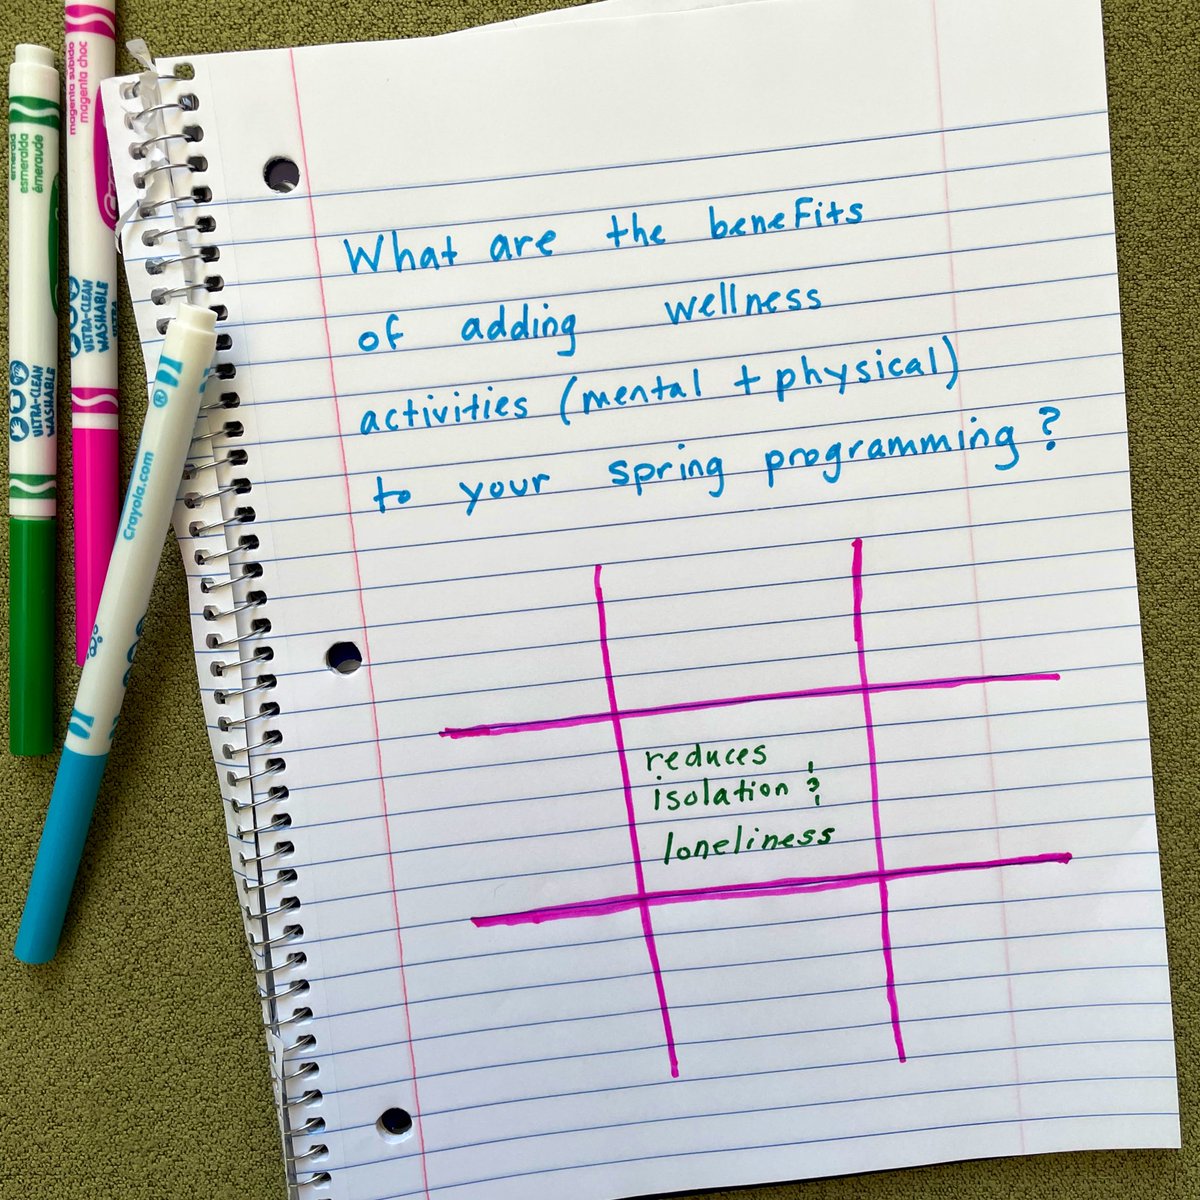 What are the benefits
of adding wellness
activities (mental + physical)
to your spring programming?
reduces
isolation &
loneliness
emerald
esmeralda
émeraude
ULTRA-CLEAN
WASHABLE
magenta subido
magenta choc
ULTRA-CLEAN
WASHABLE
Crayola.com